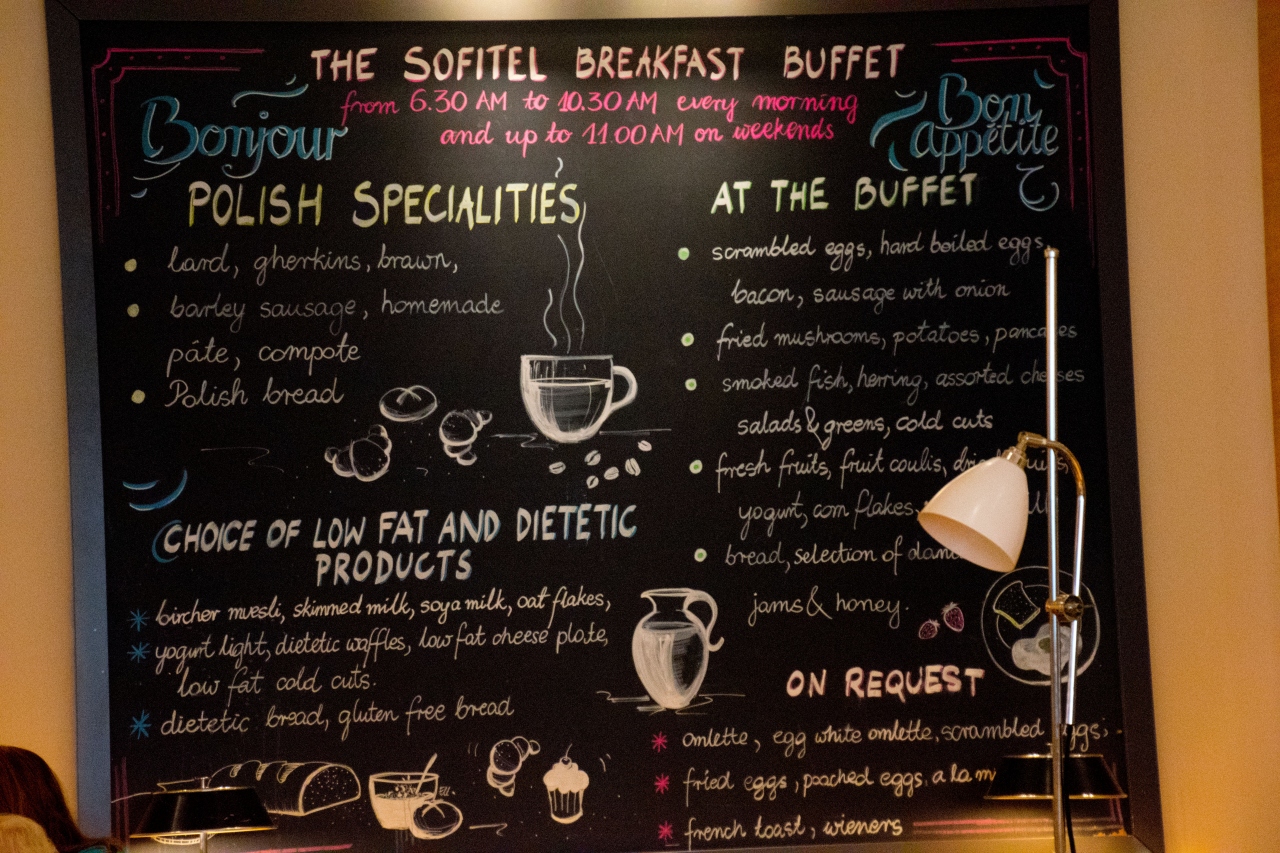 THE SOFITEL BREAKFAST BUFFET
from 6.30 AM to 10.30 AM every morning
and up to 11.00 AM on weekends
Bonjour
Bon
appétite
POLISH SPECIALITIES
lard, gherkins, brawn,
barley sausage, homemade
páte, compote
Polish bread
CHOICE OF LOW FAT AND DIETETIC
PRODUCTS
bircher muesli, skimmed milk, soya milk, oat flakes,
yogurt light, dietetic waffles, low fat cheese plate,
low fat cold cuts.
dietetic bread, gluten free bread
AT THE BUFFET
scrambled eggs, hard boiled eggs,
bacon, sausage with onion
fried mushrooms, potatoes, pancakes
smoked fish, herring, assorted cheeses
salads & greens, cold cuts
fresh fruits, fruit coulis,
yogurt, corn flakes,
bread, selection of
jams & honey.
ON REQUEST
omlette, egg white omlette, scrambled eggs,
fried eggs, poached eggs,
french toast, wieners